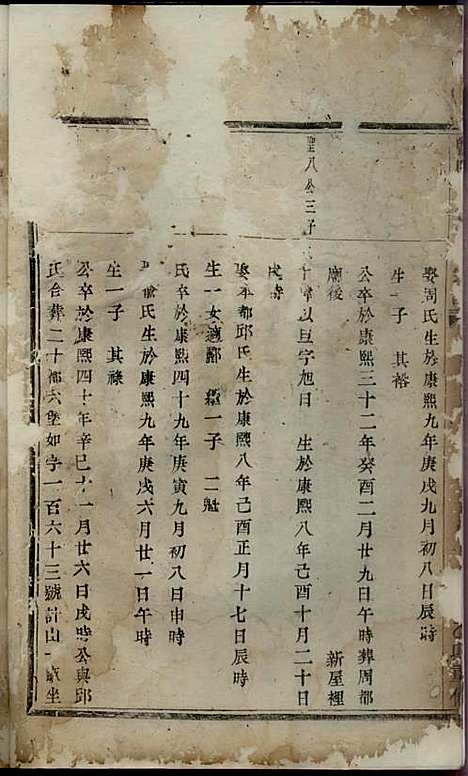 娶周氏生於康熙九年庚戌九月初八日辰時
生一子 其裕
公卒於康熙三十二年癸酉二月廿九日午時葬周都
廟後 新屋裡
聖八公三子 以旦字旭日 生於康熙八年己酉十月二十日
戌時
娶本都邱氏生於康熙八年己酉正月十七日辰時
生一女適鄒 一子 二
氏卒於康熙四十九年庚寅九月初八日申時
氏生於康熙九年庚戌六月廿一日午時
生一子 其祿
公卒於康熙四十年辛巳十一月廿六日戌時公與邱
氏合葬二十都六堡如字一百六十三號計山一畝坐